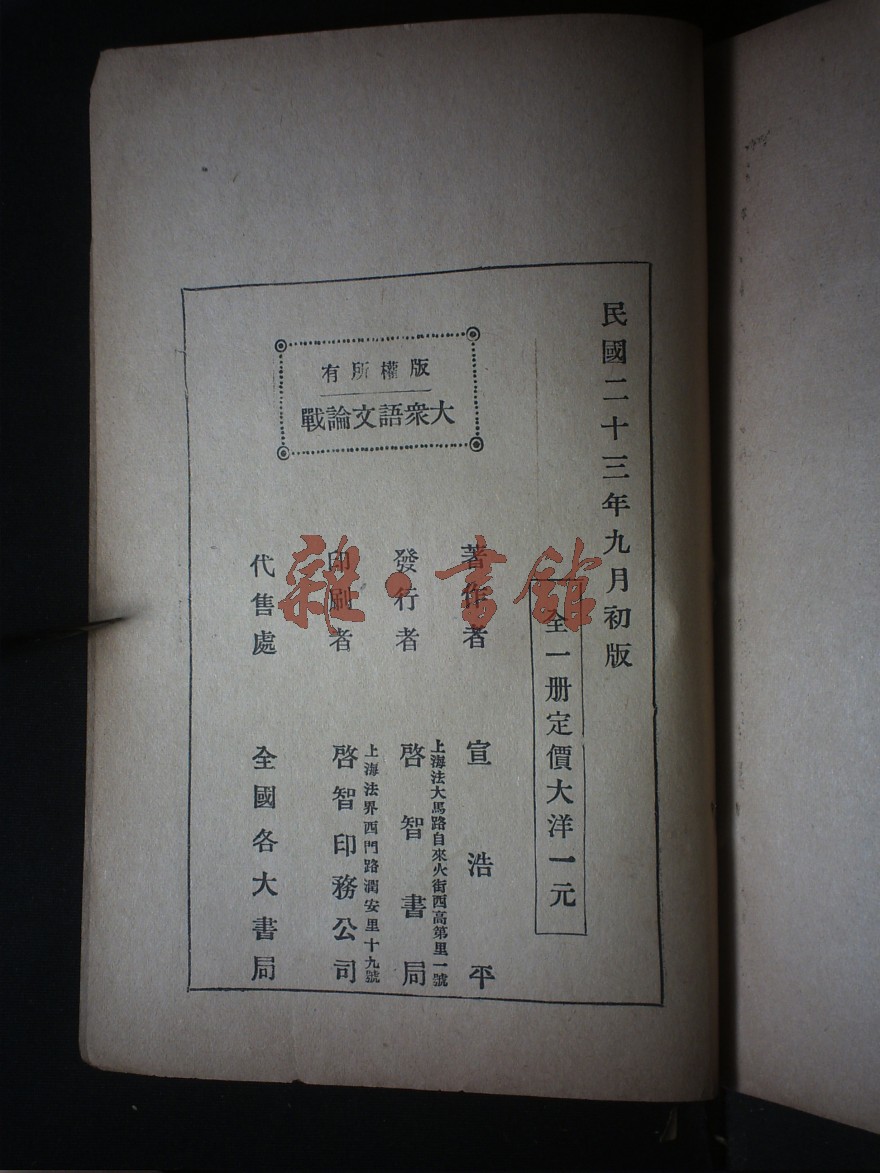 民國二十三年九月初版
全一册定價大洋一元
版權所有
大衆語文論戰
著作者 宣浩平
上海法大馬路自來火街西高第里一號
發行者 啓智書局
上海法界西門路潤安里十九號
印刷者 啓智印務公司
代售處 全國各大書局
雜·書館